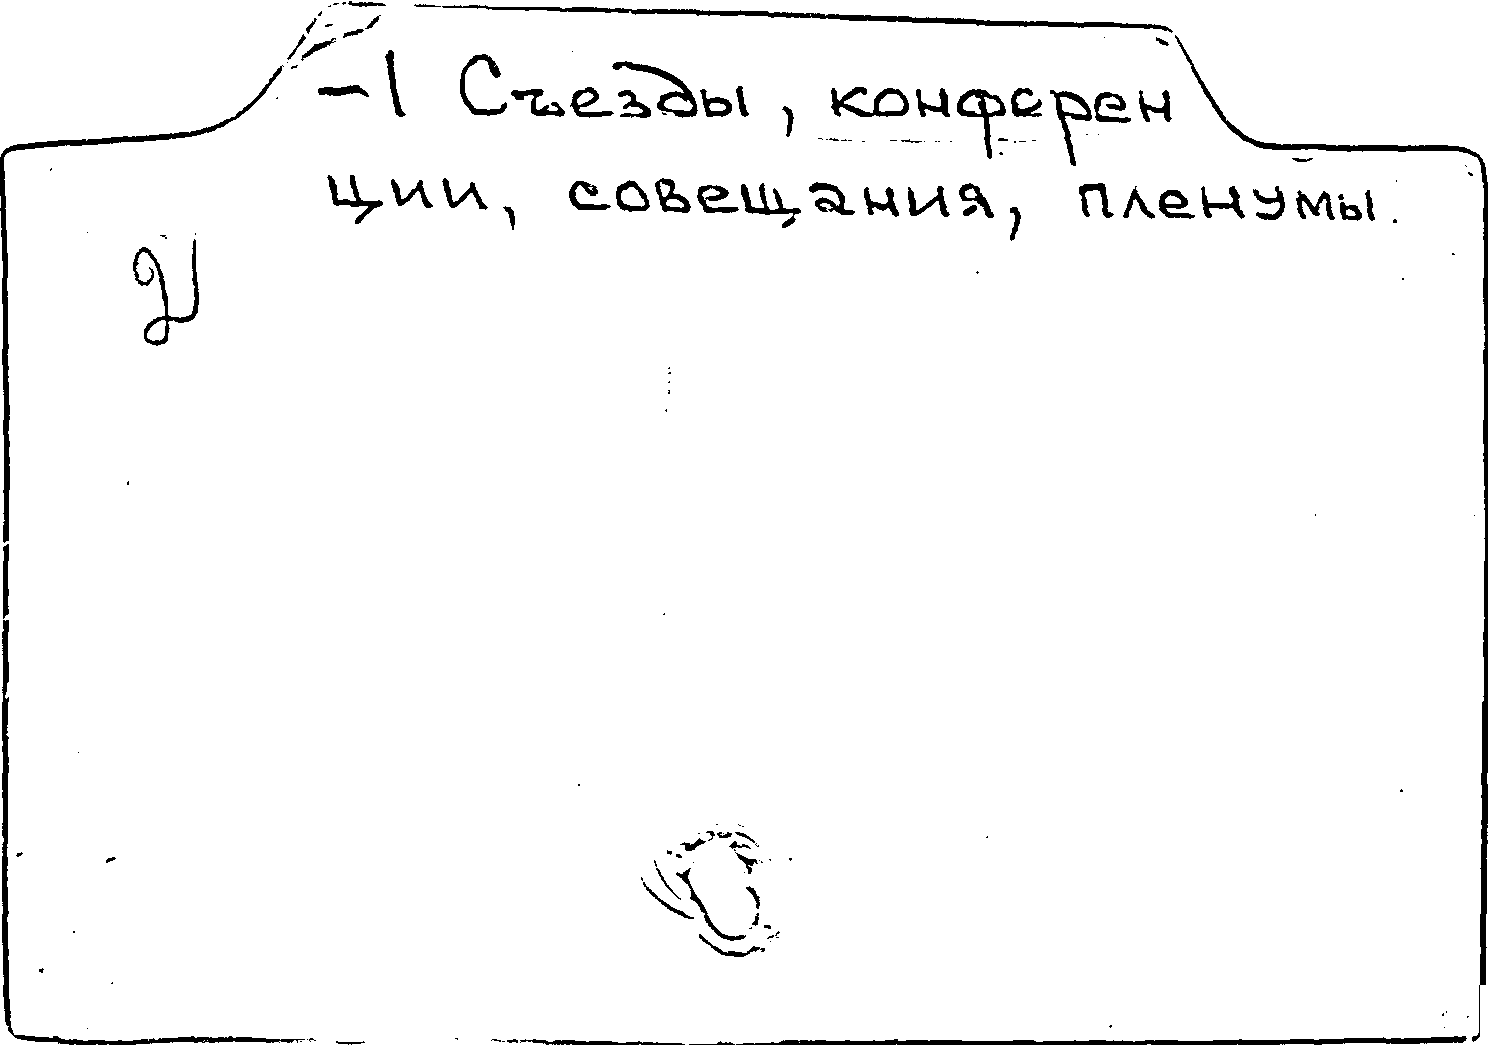 -1 Съезды, конферен
ции, совещания, пленумы.